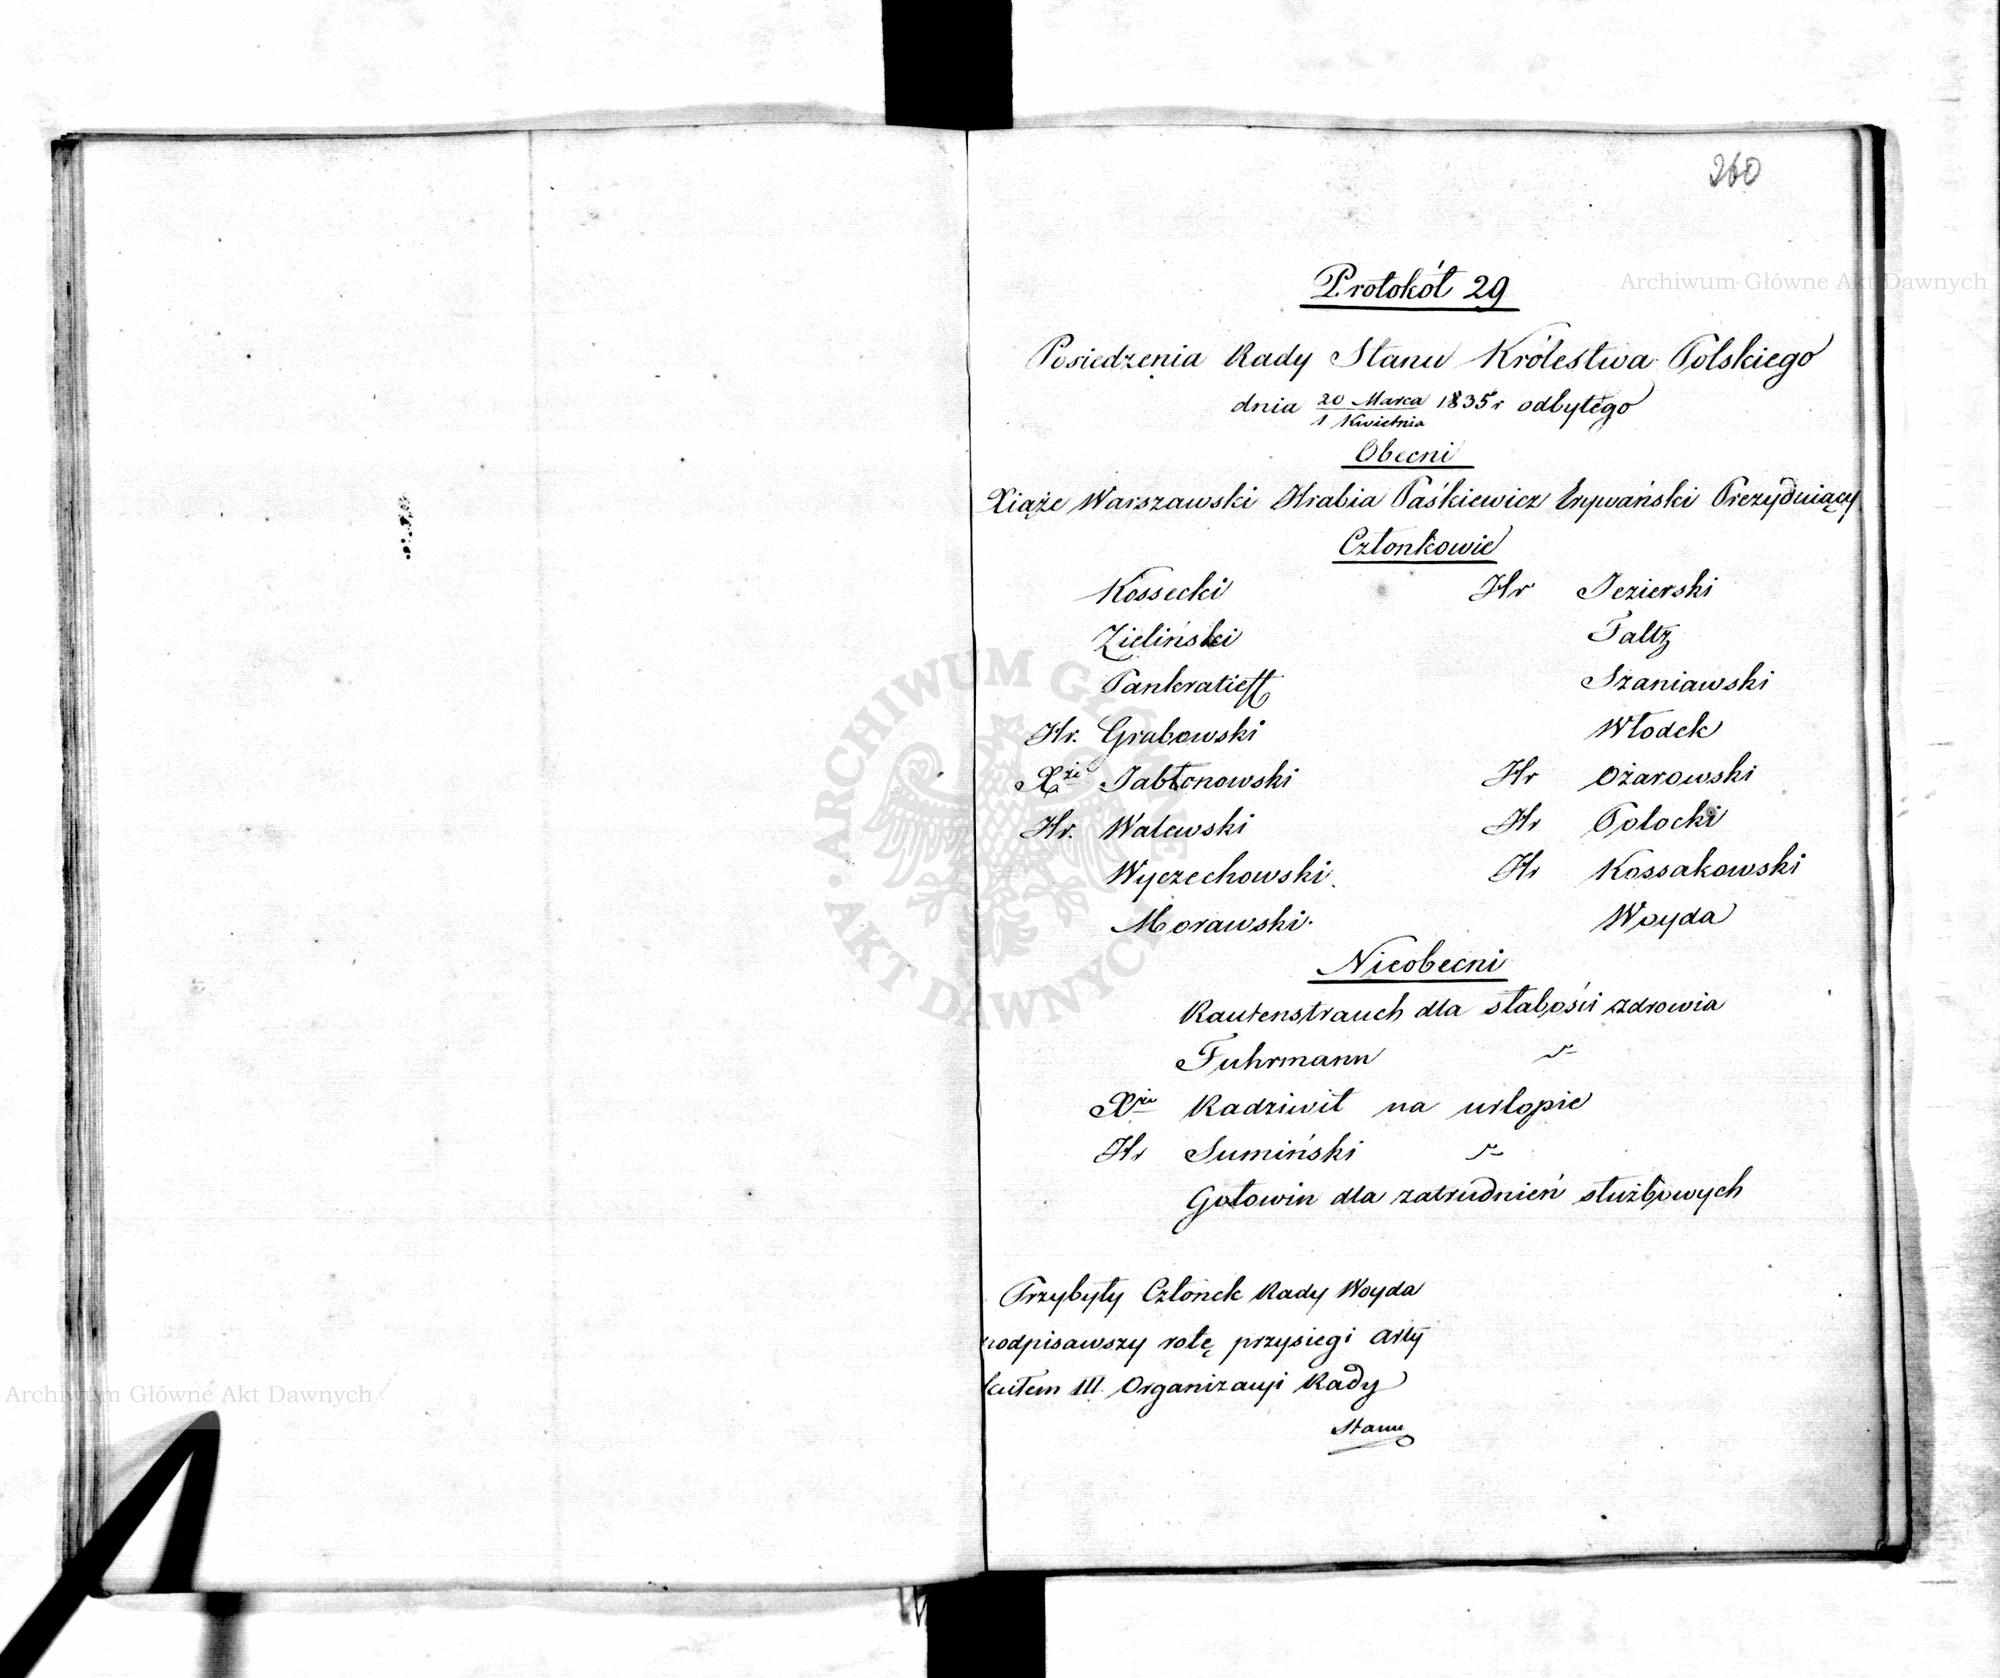 260
Protokół 29
Posiedzenia Rady Stanu Królestwa Polskiego
dnia 20 Marca / 1 Kwietnia 1835 r odbytego
Obecni
Xiąże Warszawski Hrabia Paśkiewicz Erywański Prezyduiący
Członkowie
Kossecki Hr Jezierski
Zieliński Faltz
Pankratieff Szaniawski
Hr. Grabowski Włodek
Xże Jabłonowski Hr Ożarowski
Hr. Walewski Hr Potocki
Wyczechowski Hr Kossakowski
Morawski Woyda
Nieobecni
Rautenstrauch dla słabości zdrowia
Fuhrmann
Xże Radziwił na urlopie
Hr Sumiński
Gołowin dla zatrudnień służbowych
Przybyły Członek Rady Woyda
podpisawszy rotę przysiegi arty
kułem III Organizacyi Rady
Stanu
Archiwum Główne Akt Dawnych
Archiwum Główne Akt Dawnych
ARCHIWUM GŁÓWNE AKT DAWNYCH